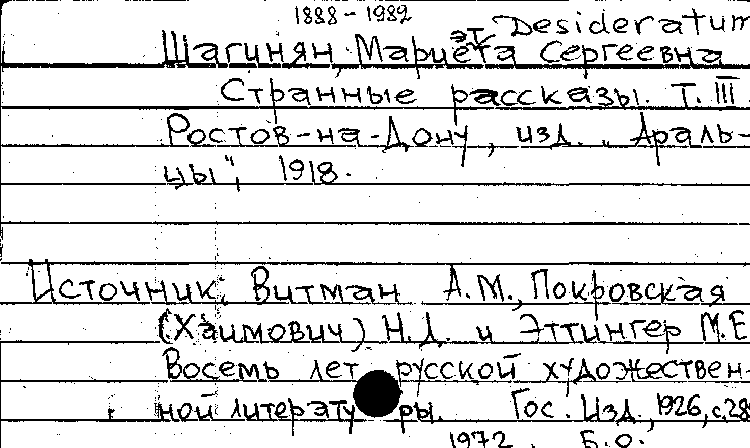 1888-1982
Desideratum
Шагинян, Мариэтта Сергеевна
Странные рассказы. Т. III
Ростов-на-Дону, изд. „Араль-
цы", 1918.
Источник: Витман А.М., Покровская
(Хаимович) Н.Д. и Эттингер М.Е
Восемь лет русской художествен-
ной литературы. Гос. Изд., 1926, с.28
1972. Б.О.